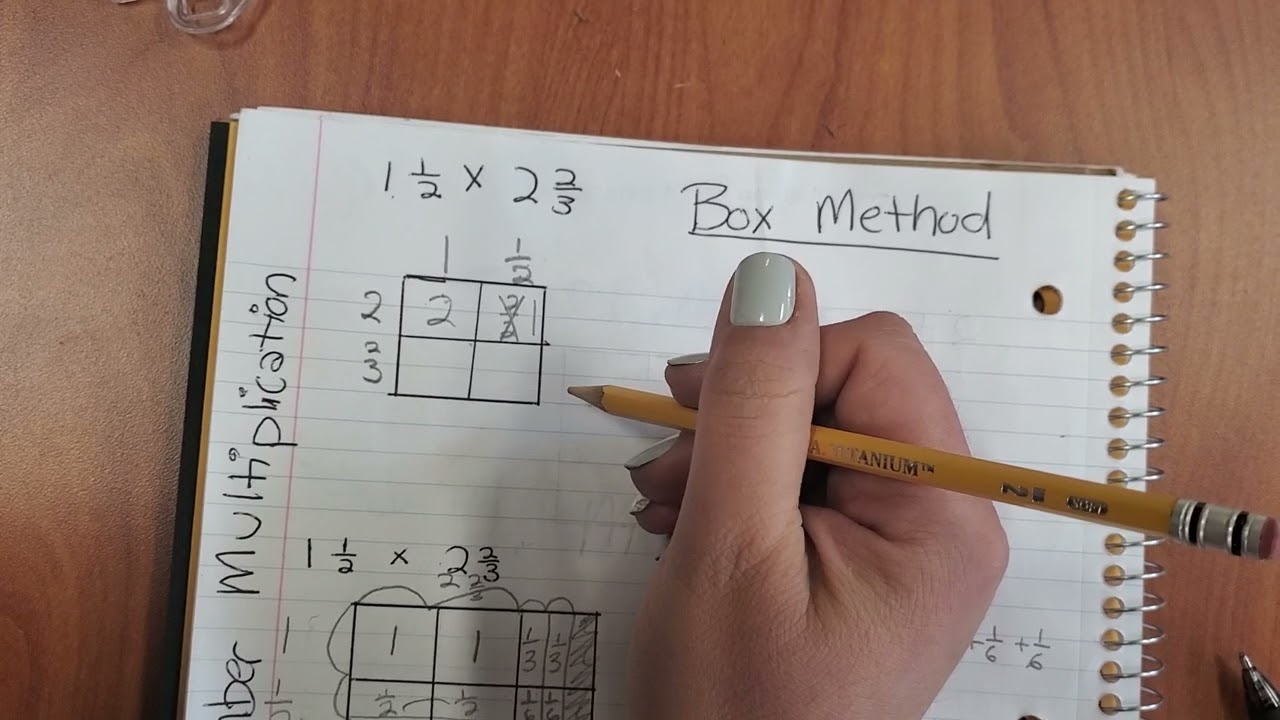 1 1/2 × 2 2/3
Box Method
1 1/2
2 2 1
2/3
Multiplication
1 1/2 × 2 2/3
2 2/3
1 1 1 1/3 1/3
1/2 1/2 1/6 1/6
+ 1/6 + 1/6
TITANIUM™
2